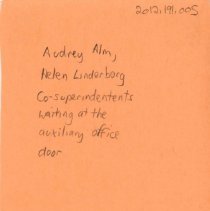 2012.191.005
Audrey Alm,
Helen Linderborg
Co-superindentents
waiting at the
auxiliary office
door